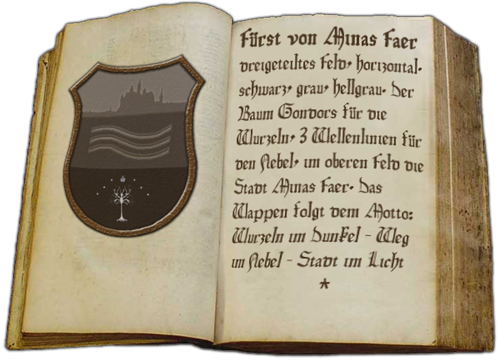 Fürst von Minas Faer
dreigeteiltes Feld, horizontal.
schwarz, grau, hellgrau. Der
Baum Gondors für die
Wurzeln, 3 Wellenlinien für
den Nebel, im oberen Feld die
Stadt Minas Faer. Das
Wappen folgt dem Motto:
Wurzeln im Dunkel - Weg
im Nebel - Stadt im Licht
*